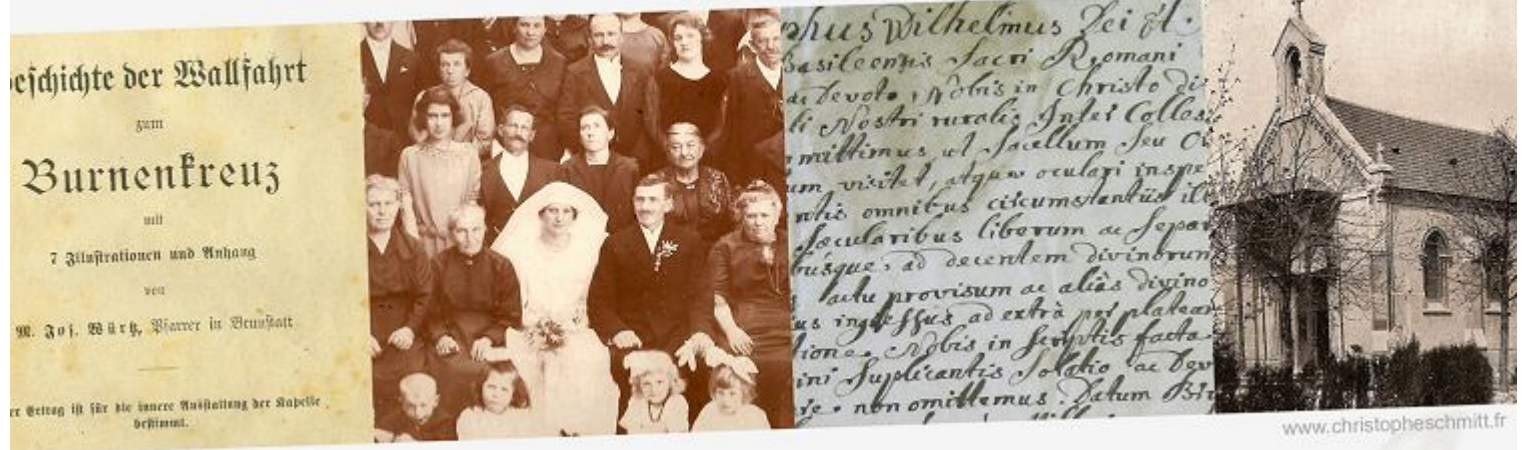 eschichte der Wallfahrt
zum
Burnenkreuz
mit
7 Illustrationen und Anhang
von
M. Jos. Würtz, Pfarrer in Brunstatt
er Ertrag ist für die innere Ausstattung der Kapelle
bestimmt.
phus Wilhelmus Dei &
Basileensis Sacri Romani
ac Devoto, Nobis in Christo di
li Nostri ruralis Inter Colles
mittimus ut Sacellum Seu
um visitet, atque oculari inspe
ntis omnibus circumstantiis ill
Sæcularibus liberum ac Separ
busque, ad decentem divinorum
actu provisum ac aliàs divino
us ingressus ad extrà per platear
tione, Nobis in scriptis facta
ini Suplicantis Solatio ac Dev
non omittemus. Datum
www.christopheschmitt.fr